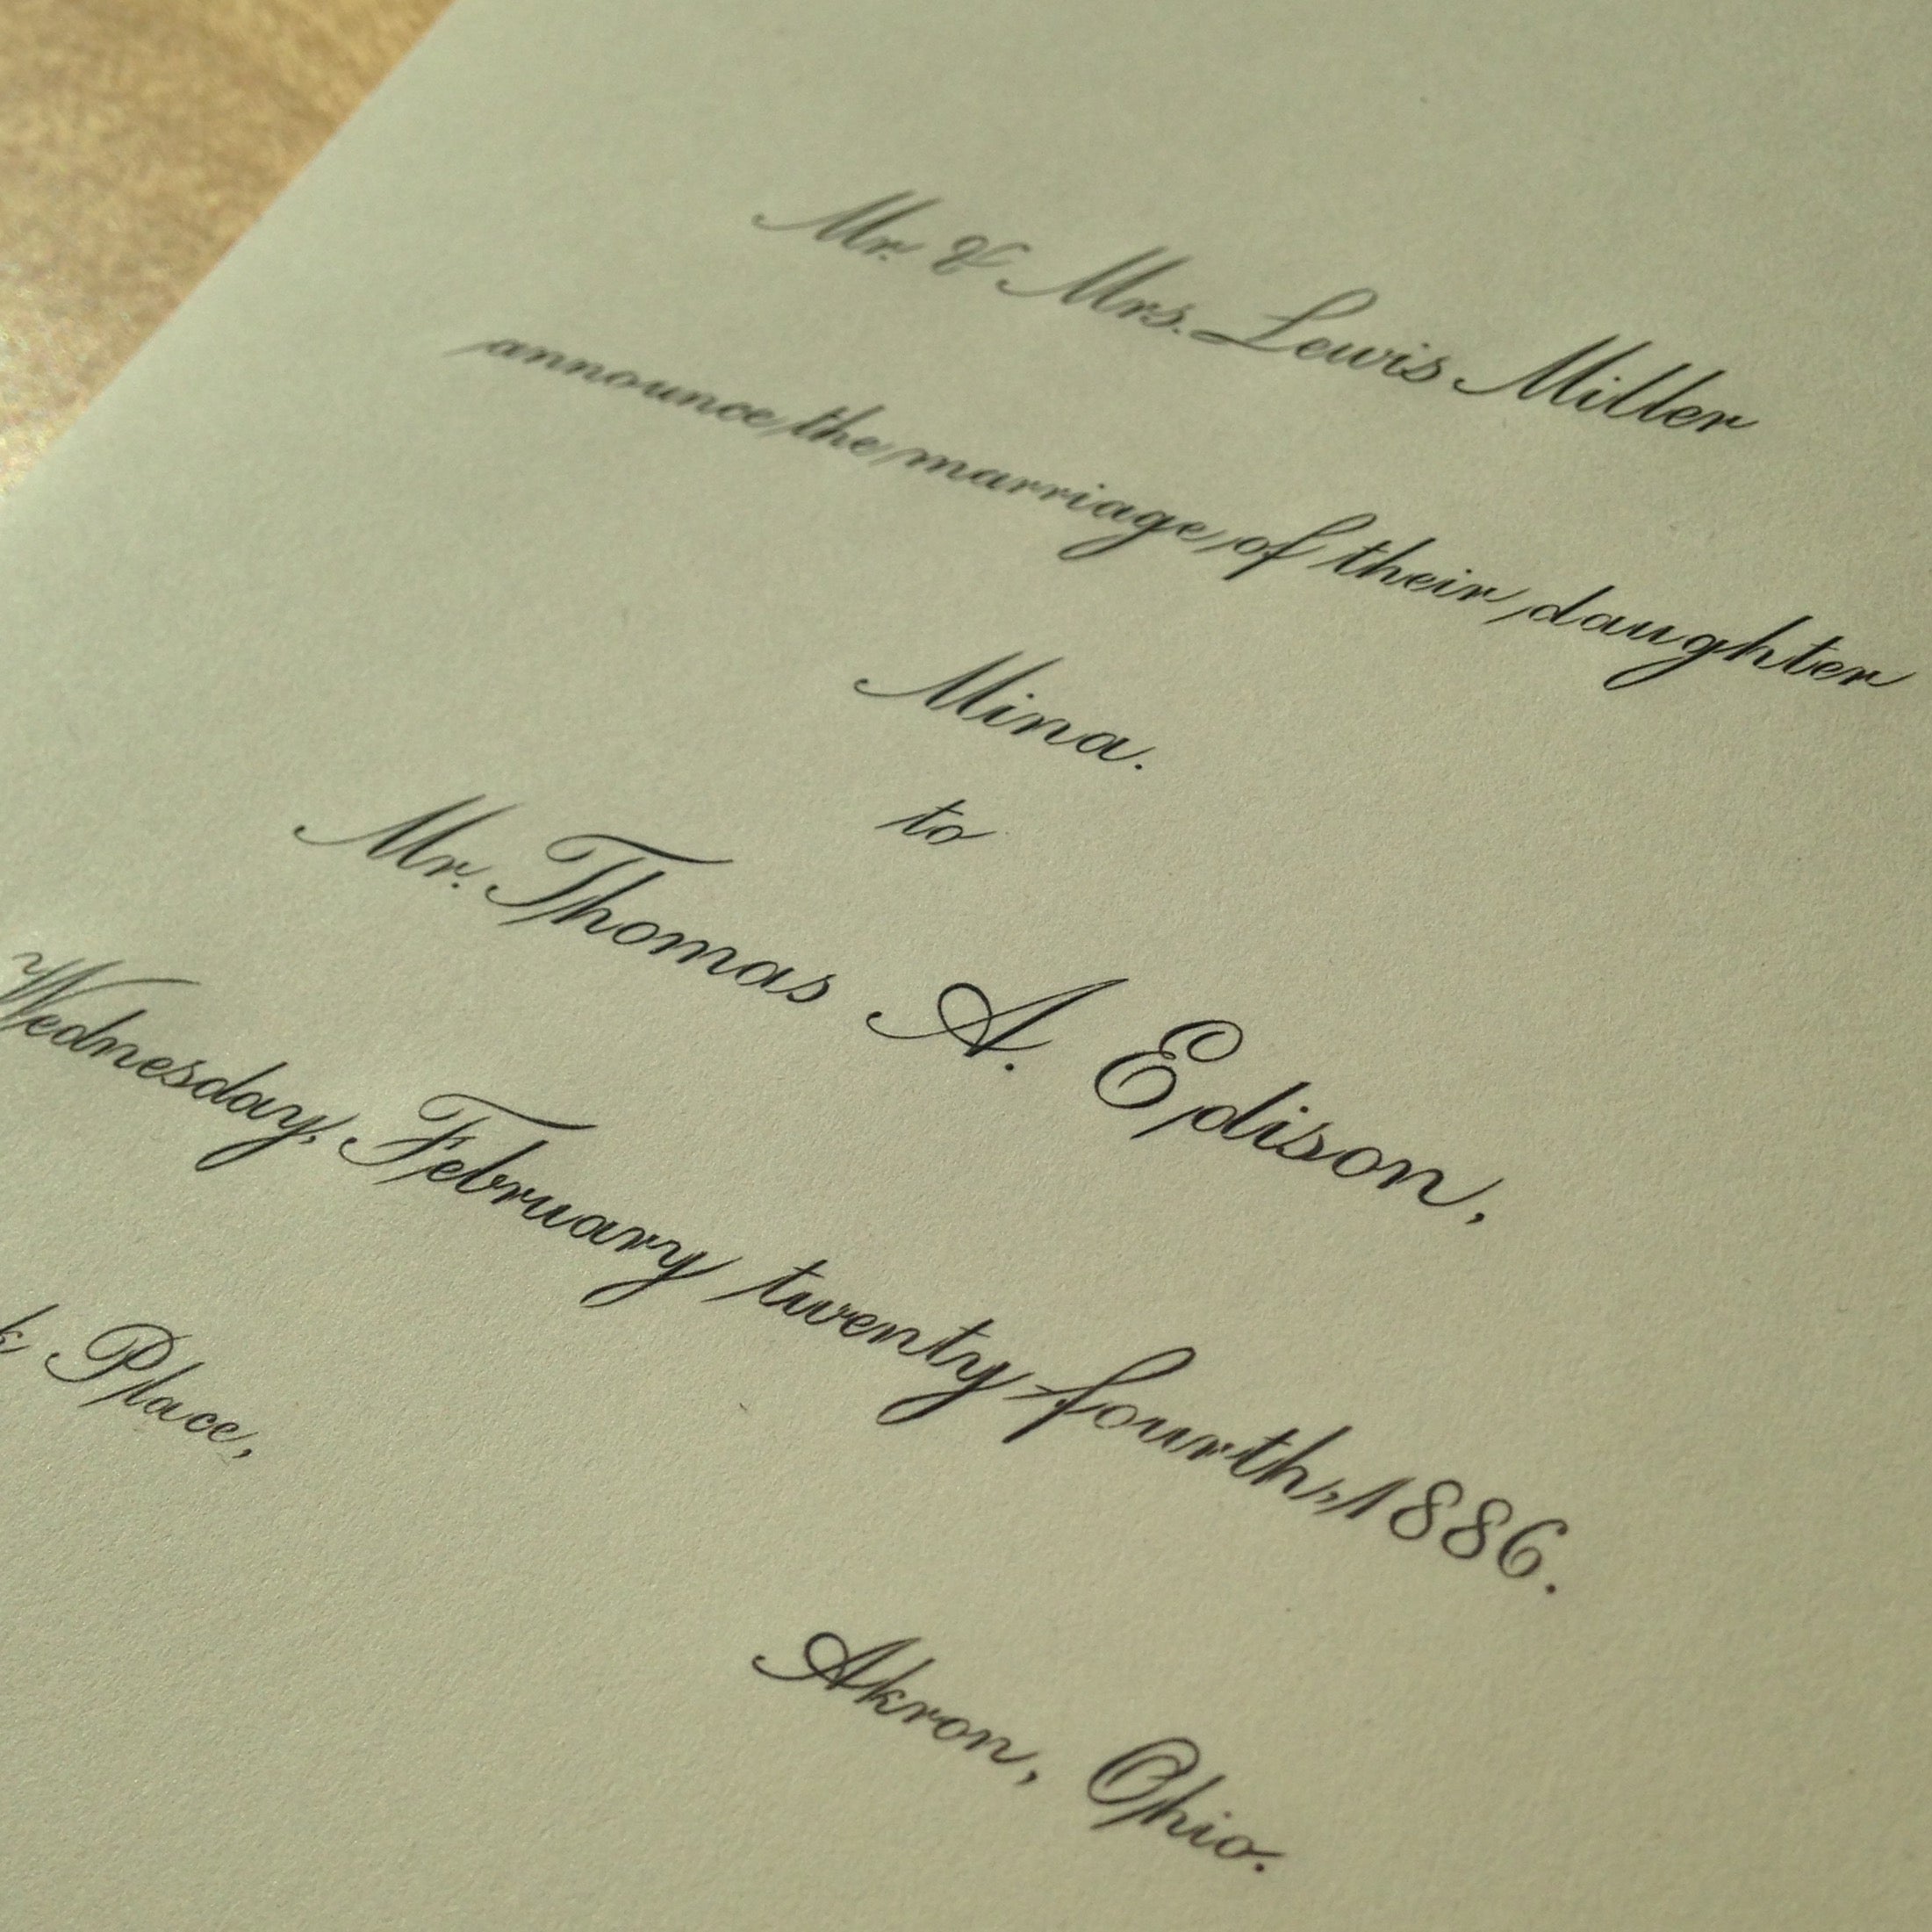 Mr. & Mrs. Lewis Miller
announce the marriage of their daughter
Mina.
to
Mr. Thomas A. Edison,
Wednesday, February twenty-fourth, 1886.
k Place,
Akron, Ohio.